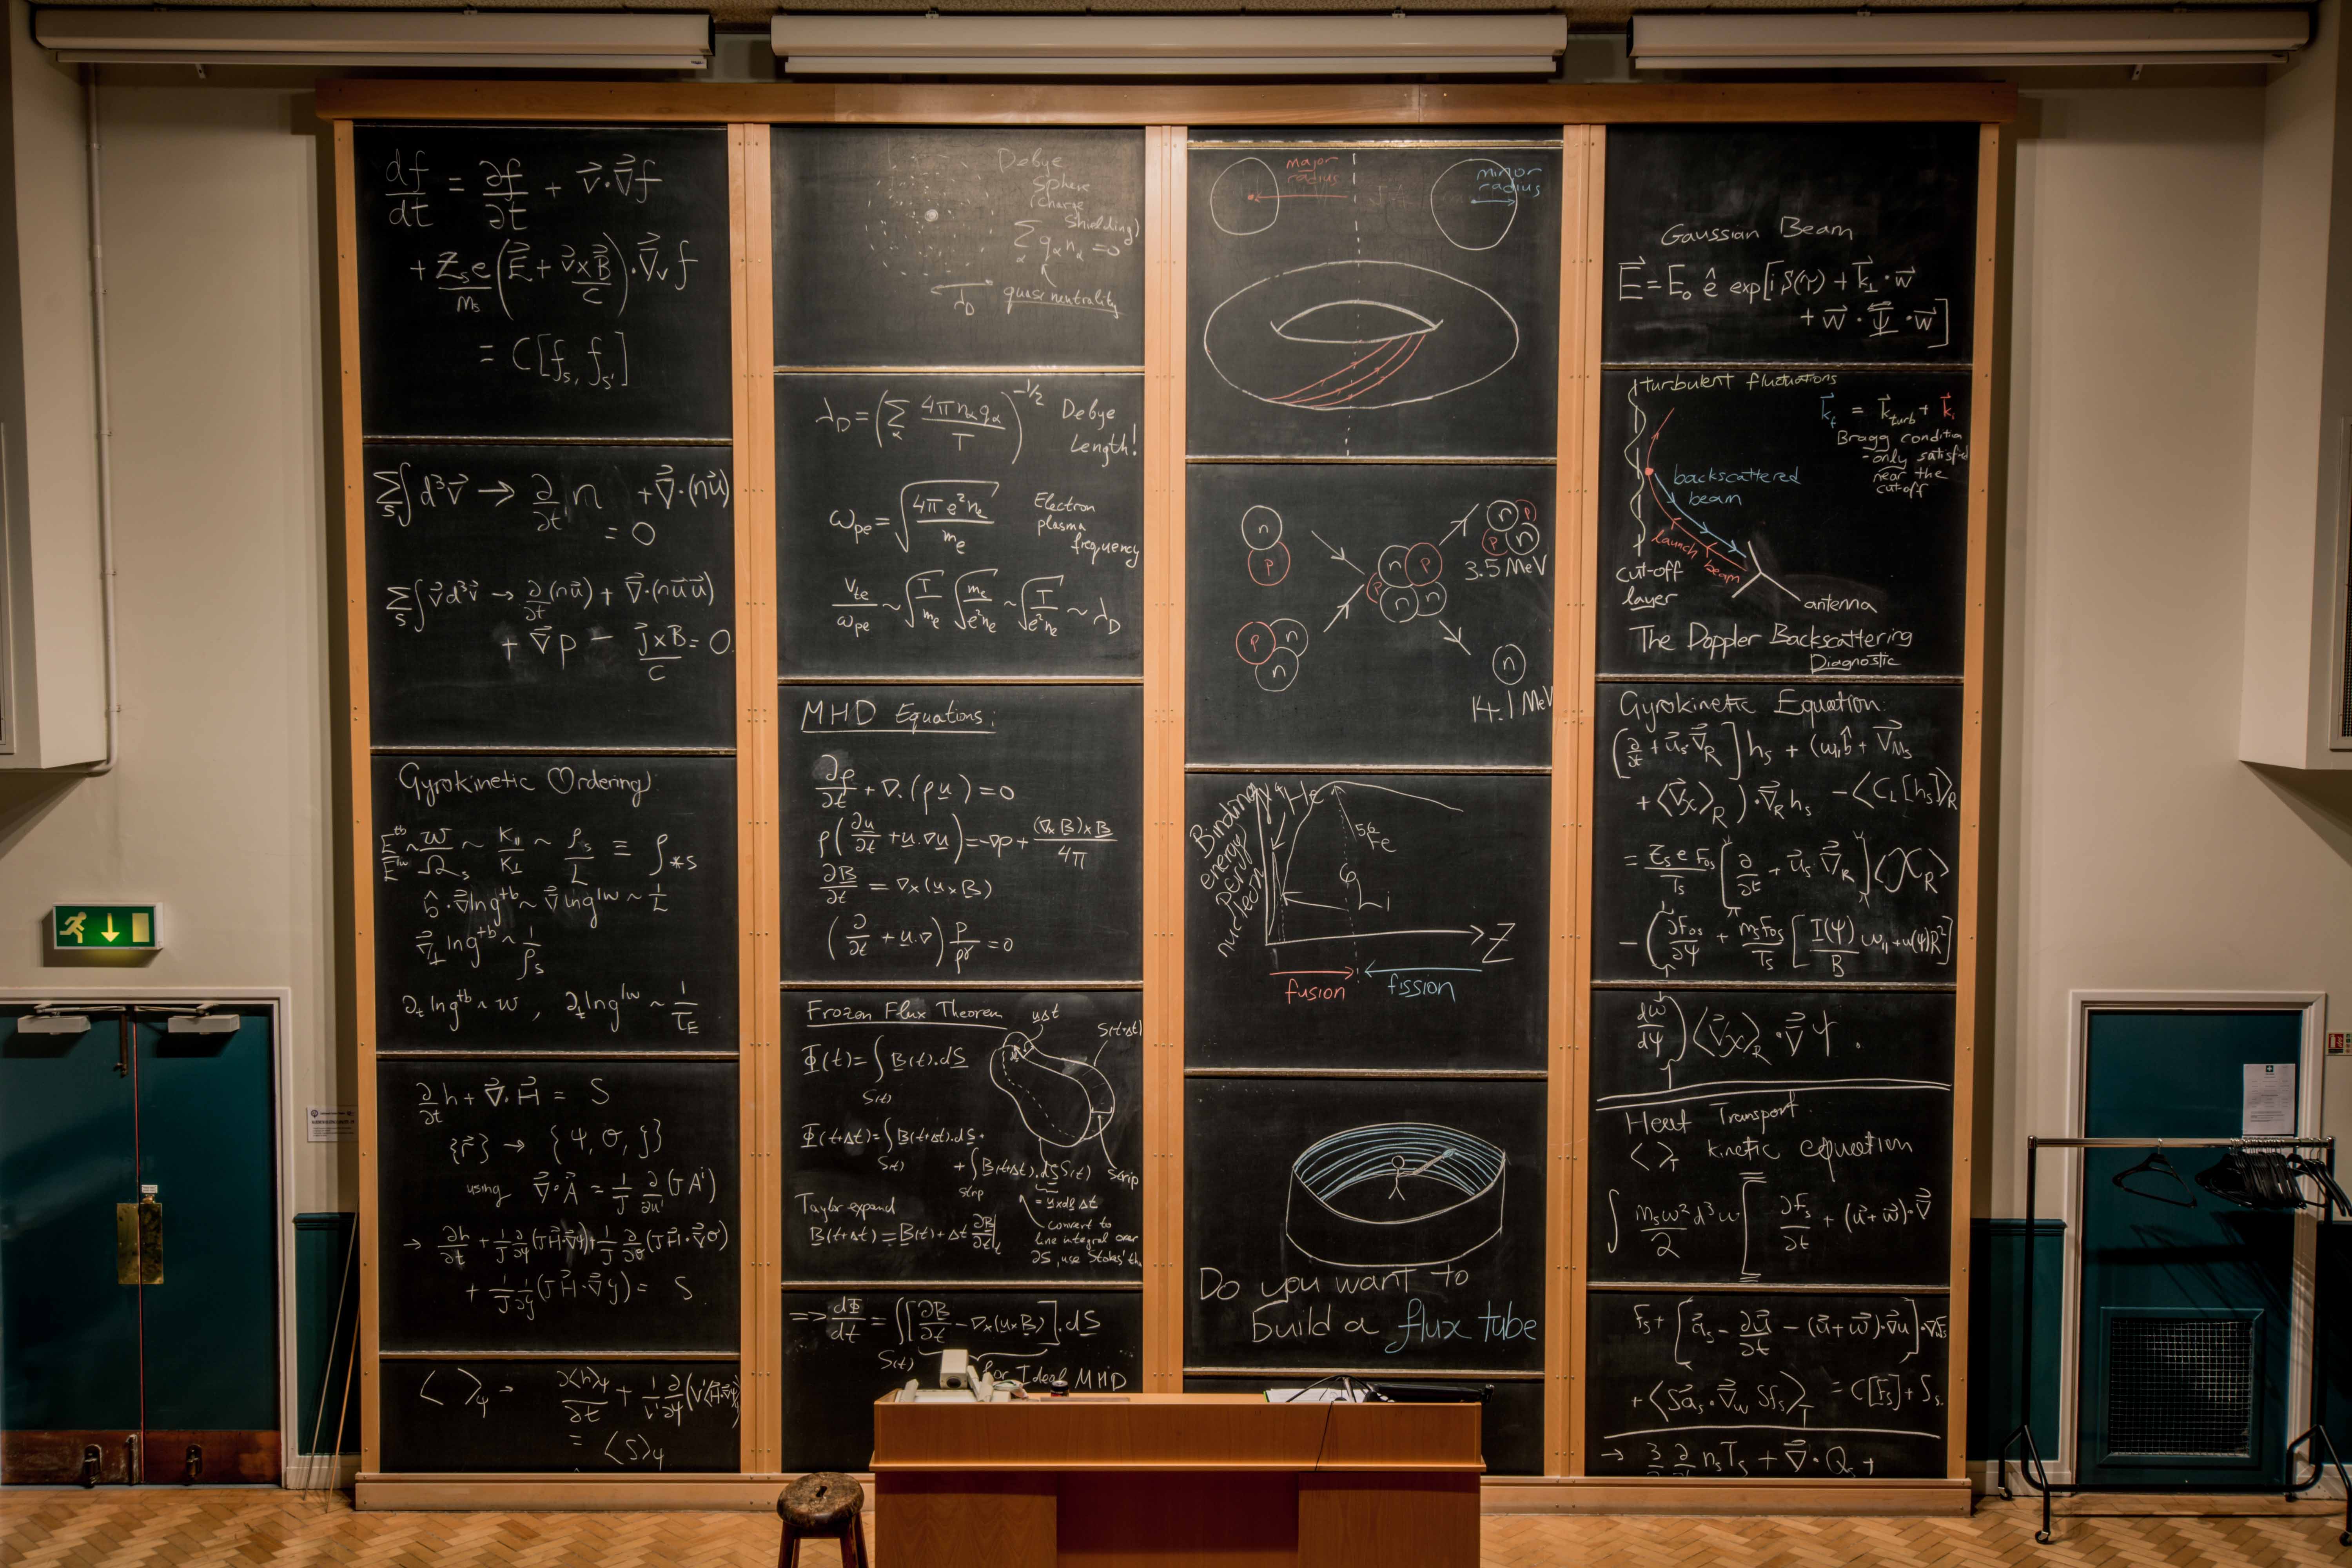 df/dt = ∂f/∂t + v⃗·∇⃗f
+ Z_s e/m_s (E⃗ + v⃗×B⃗/c)·∇⃗_v f
= C[f_s, f_s']
Σ_s ∫d³v⃗ → ∂/∂t n + ∇⃗·(nu⃗)
= 0
Σ_s ∫v⃗d³v⃗ → ∂/∂t (nu⃗) + ∇⃗·(nu⃗u⃗)
+ ∇⃗p − j⃗×B/c = 0
Gyrokinetic Ordering
E^tb/E^lw ~ w/Ω_s ~ K_∥/K_⊥ ~ ρ_s/L ≡ ρ_*s
b̂·∇⃗ln g^tb ~ ∇⃗ ln g^lw ~ 1/L
∇⃗_⊥ ln g^tb ~ 1/ρ_s
∂_t ln g^tb ~ w , ∂_t ln g^lw ~ 1/τ_E
∂/∂t h + ∇⃗·H⃗ = S
{r⃗} → {ψ, θ, ζ}
using ∇⃗·A⃗ = 1/J ∂/∂u^i (JA^i)
→ ∂h/∂t + 1/J ∂/∂ψ (JH⃗·∇⃗ψ) + 1/J ∂/∂θ (JH⃗·∇⃗θ)
+ 1/J ∂/∂ζ (JH⃗·∇⃗ζ) = S
⟨ ⟩_ψ → ∂⟨h⟩_ψ/∂t + 1/V' ∂/∂ψ (V'⟨H⃗·∇⃗ψ⟩_ψ)
= ⟨S⟩_ψ
Debye
Sphere
(charge
Shielding)
Σ_α q_α n_α = 0
λ_D
quasineutrality
λ_D = (Σ_α 4π n_α q_α/T)^-1/2 Debye
Length!
ω_pe = √(4π e² n_e/m_e) Electron
plasma
frequency
v_te/ω_pe ~ √(T/m_e) √(m_e/e²n_e) ~ √(T/e²n_e) ~ λ_D
MHD Equations:
∂ρ/∂t + ∇.(ρu) = 0
ρ(∂u/∂t + u.∇u) = -∇p + (∇×B)×B/4π
∂B/∂t = ∇×(u×B)
(∂/∂t + u.∇) p/ρ^γ = 0
Frozen Flux Theorem
uΔt
S(t+Δt)
Φ(t) = ∫ B(t).dS
S(t)
Φ(t+Δt) = ∫ B(t+Δt).dS +
S(t)
+ ∫ B(t+Δt).dS
strip
S(t)
Strip
= u×dl Δt
Taylor expand
B(t+Δt) = B(t) + Δt ∂B/∂t|_t
convert to
line integral over
∂S, use Stokes' th
=> dΦ/dt = ∫[∂B/∂t − ∇×(u×B)].dS
S(t)
for Ideal MHD
major
radius
minor
radius
n
p
p
n
n
n
p
p
n
n
n
p
p
n
3.5 MeV
n
14.1 MeV
Binding
energy
per
nucleon
⁴He
⁵⁶Fe
⁶Li
Z
fusion
fission
Do you want to
build a flux tube
Gaussian Beam
E⃗ = E_0 ê exp[i S(τ) + k⃗_⊥·w⃗
+ w⃗·Ψ·w⃗]
turbulent fluctuations
k⃗_f = k⃗_turb + k⃗_i
Bragg condition
- only satisfied
near the
cut-off
backscattered
beam
launch
beam
cut-off
layer
antenna
The Doppler Backscattering
Diagnostic
Gyrokinetic Equation:
[∂/∂t + u⃗_s·∇⃗_R] h_s + (w_∥b̂ + V⃗_Ms
+ ⟨V⃗_χ⟩_R)·∇⃗_R h_s − ⟨C_L[h_s]⟩_R
= Z_s e F_0s/T_s [∂/∂t + u⃗_s·∇⃗_R] ⟨χ_R⟩
− (∂F_0s/∂ψ + m_s F_0s/T_s [I(ψ)/B w_∥ + u(ψ)R²]
dω/dψ)⟨V⃗_χ⟩_R·∇⃗ψ.
Heat Transport
⟨ ⟩_T kinetic equation
∫ m_s w²/2 d³w [∂F_s/∂t + (u⃗+w⃗)·∇⃗
F_s + [a⃗_s − ∂u⃗/∂t − (u⃗+w⃗)·∇u⃗]·∇F_s
+ ⟨δa⃗_s·∇⃗_w δf_s⟩_T = C[F_s] + S_s.
→ 3/2 ∂/∂t n_s T_s + ∇⃗·Q_s +